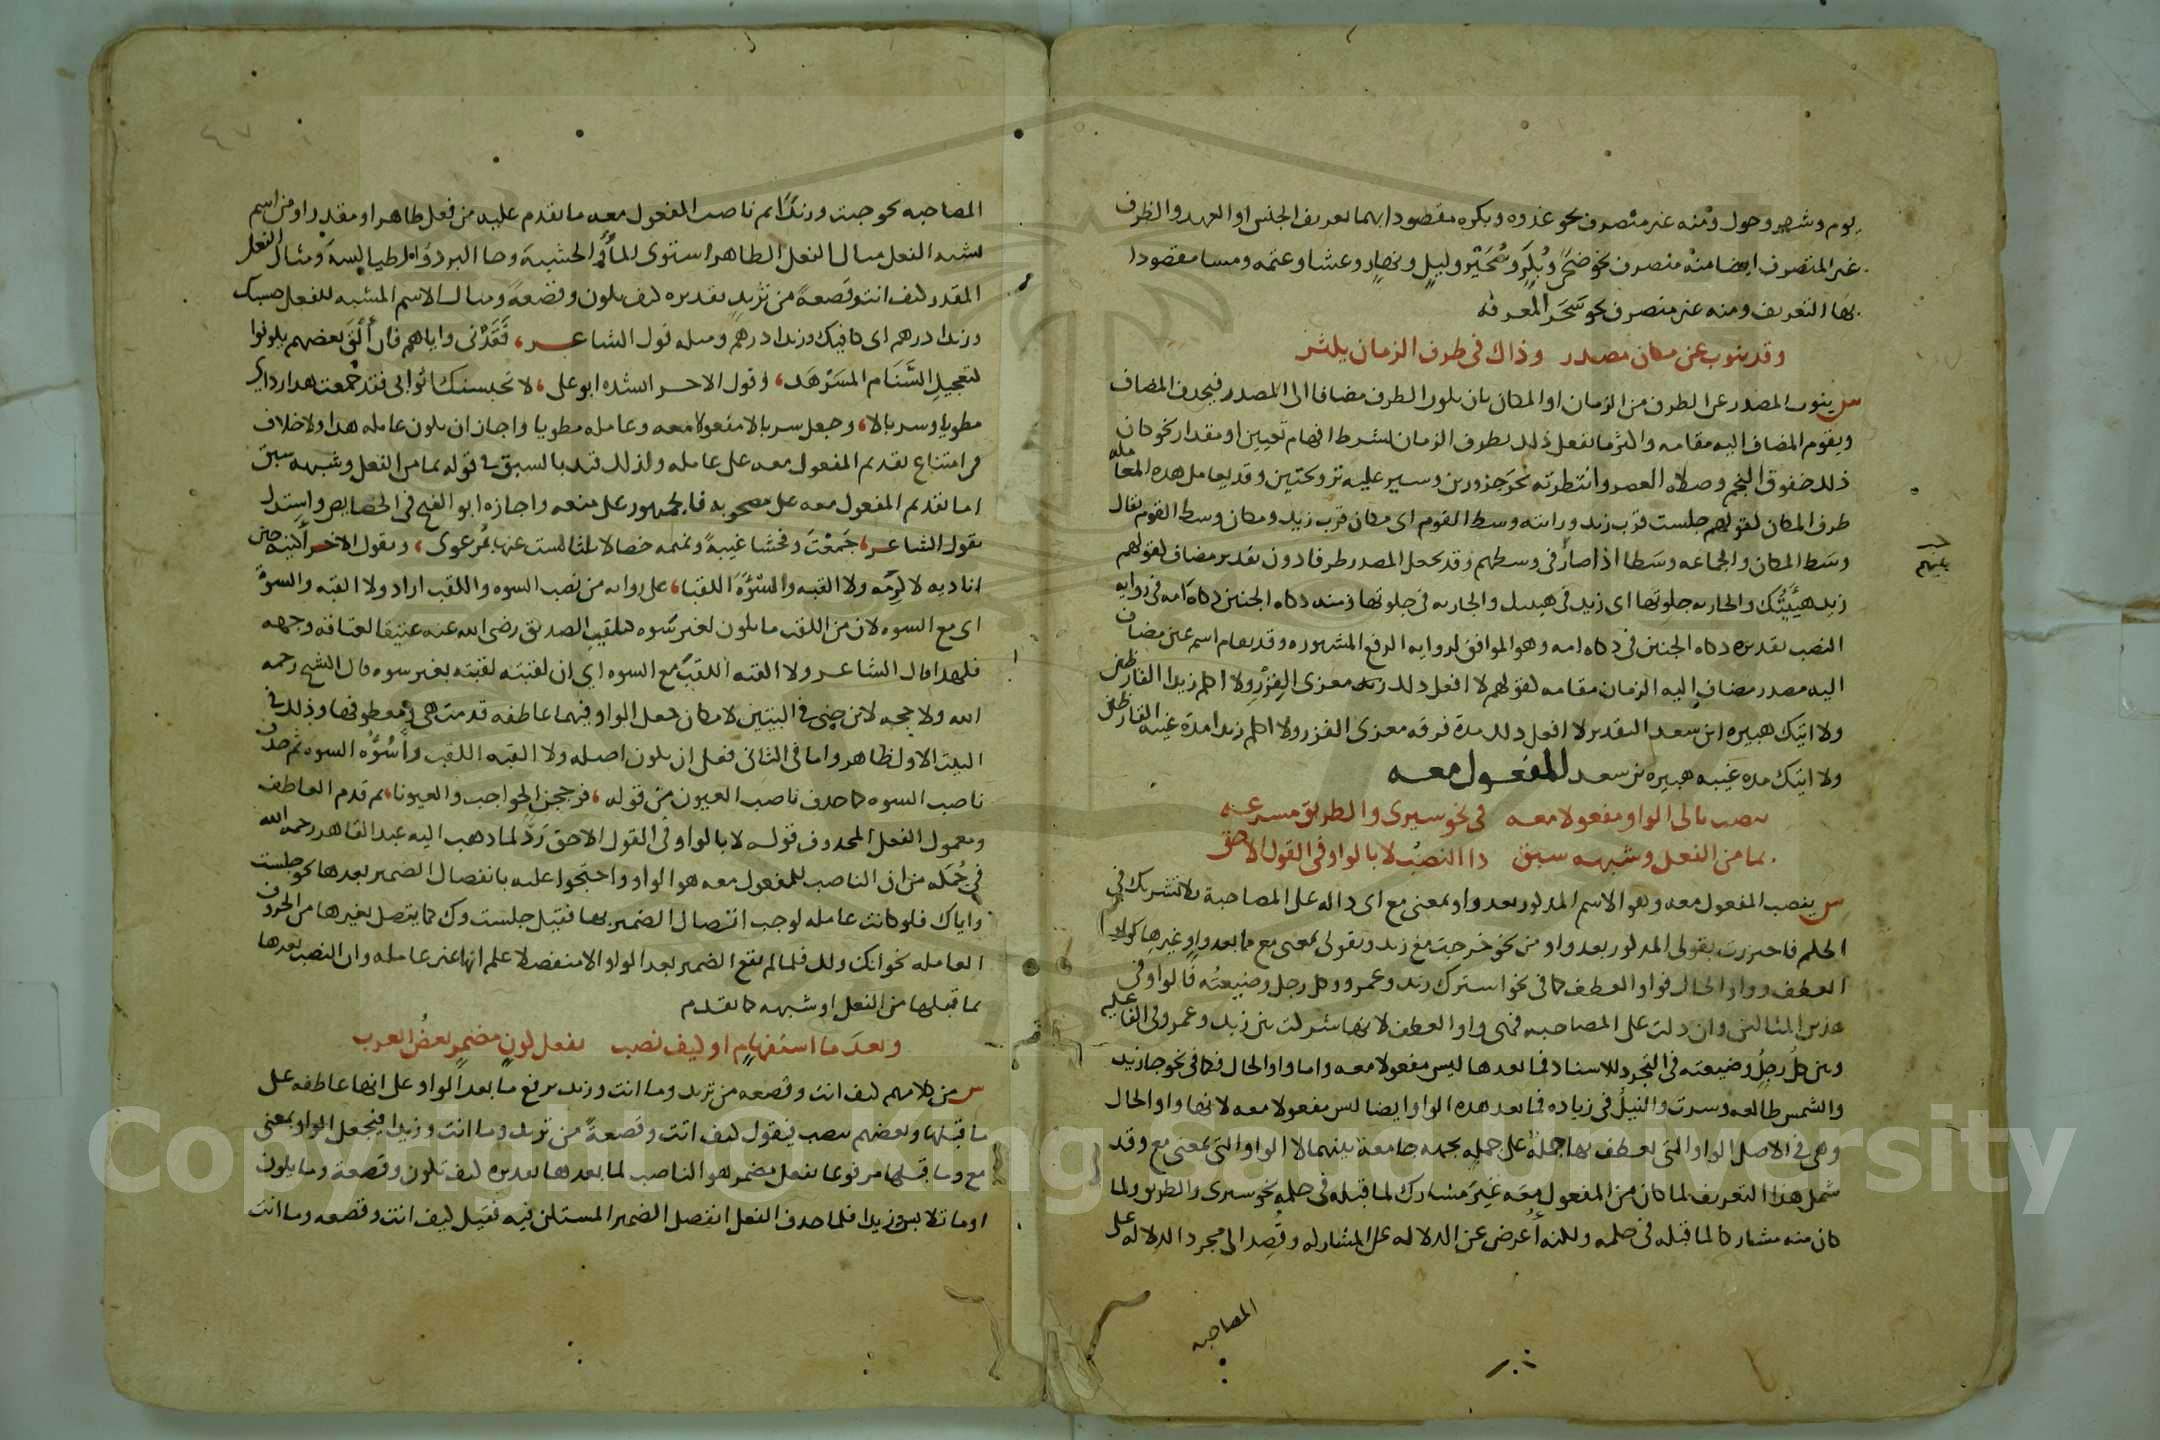 يوم وشهر وحول ومنه غير متصرف نحو غدوه وبكره مقصودا بهما تعريف الجنس او العهد والظرف
غير المتصرف ايضا منه منصرف نحو ضحًى وبُكَرٍ وسُحَيْرٍ وليلٍ ونهارٍ وعشا وعتمه ومسا مقصودا
بها التعريف ومنه غير منصرف نحو سَحَرَ المعرفه
وقد ينوب عن مكان مصدر وذاك في ظرف الزمان يكثر
س ينوب المصدر عن الظرف من الزمان او المكان بان يكون الظرف مضافا الى المصدر فيحذف المضاف
ويقوم المضاف اليه مقامه واكثر ما يفعل ذلك بظرف الزمان بشرط افهام تعيين او مقدار نحو كان
ذلك خفوق النجم وصلاه العصر وانتظرته نحر جزورين وسير عليه ترويحتين وقد يعامل هذه المعامله
ظرف المكان كقولهم جلست قرب زيد ورايته وسط القوم اى مكان قرب زيد ومكان وسط القوم يقال
وسَط المكان والجماعه وسَطا اذا صار في وسطهم وقد يجعل المصدر ظرفا دون تقدير مضاف كقولهم
زيد هيئَتك والجاريه جلوتها اى زيد في هيئتك والجاريه في جلوتها ومنه ذكاه الجنين ذكاه امه في روايه
النصب تقديره ذكاه الجنين في ذكاه امه وهو الموافق لروايه الرفع المشهوره وقد يقام اسم عين مضاف
اليه مصدر مضاف اليه الزمان مقامه كقولهم لا افعل ذلك معزى الفِزْرِ ولا اكلم زيدا القارظين
ولا اتيك هبيره ابن سعد التقدير لا افعل ذلك مدة فرقه معزى الفزر ولا اكلم زيدا مدة غيبه القارظين
ولا اتيك مده غيبه هبيره بن سعد المفعول معه
ينصب تالى الواو مفعولا معه في نحو سيرى والطريق مسرعه
بما من الفعل وشبهه سبق ذا النصبُ لا بالواو في القول الاحق
س ينصب المفعول معه وهو الاسم المذكور بعد واو بمعنى مع اى داله على المصاحبة بلا تشريك في
الحكم فاحترزت بقولى المذكور بعد واو من نحو خرجت مع زيد وبقولى بمعنى مع مما بعد واو غيرها كواو
العطف وواو الحال فواو العطف كما في نحو اشترك زيد وعمرو وكل رجل وضيعتُه فالواو في
هذين المثالين وان دلت على المصاحبه فهى واو العطف لانها شركت بين زيد وعمرو في الفاعليه
وبين كل رجلٍ وضيعته في التجرد للاسناد فما بعدها ليس مفعولا معه واما واو الحال فكما في نحو جا زيد
والشمس طالعه وسرت والنيلُ في زياده فما بعد هذه الواو ايضا ليس مفعولا معه لانها واو الحال
وهى في الاصل الواو التى يعطف بها جملةٌ على جملةٍ بجهه جامعة بينهما لا الواو التى بمعنى مع وقد
شمل هذا التعريف لما كان من المفعول معه غيرَ مشارك لما قبله في حكمه نحو سيرى والطريق ولما
كان منه مشاركا لما قبله في حكمه ولكنه أُعرض عن الدلاله على المشاركه وقُصِد الى مجرد الدلاله على
المصاحبه
المصاحبه نحو جيت وزيدًا ثم ناصب المفعول معه ما تقدم عليه من فعل ظاهر او مقدر او من اسم
يشبه الفعل مثال الفعل الظاهر استوى الماءُ والخشبةَ وجا البرد والطيالسةَ ومثال الفعل
المقدر كيف انت وقصعةً من ثريدٍ تقديره كيف تكون وقصعةً ومثال الاسم المشبه للفعل حسبك
وزيدا درهم اى كافيك وزيدا درهم ومثله قول الشاعر، فَقَدْنى واياهم فان ألْقَ بعضهم يكونوا
كتعجيلِ السَّنَامِ المسَرْهَدِ، وقول الاخر انشده ابو على، لا تحبسنك اثوابى فقد جُمعت هذا رداى
مطويا وسربالا، وجعل سربالا مفعولا معه وعامله مطويا واجاز ان يكون عامله هذا ولا خلاف
في امتناع تقديم المفعول معه على عامله ولذلك قيد بالسبق في قوله بما من الفعل وشبهه سبق
اما تقديم المفعول معه على مصحوبه فالجمهور على منعه واجازه ابو الفتح في الخصايص واستدل
بقول الشاعر، جَمعْتَ وفحشا غيبةً ونميمه خصالا ثلثا لست عنها بمُرعوى، وبقول الاخر أكنيه حين
اناديه لاكرِمَه ولا القبه والسَّوْءَةَ اللقبا، على روايه من نصب السوه واللقب اراد ولا القبه والسوةَ
اى مع السوه لان من اللقب ما يكون لغير سَوه كتلقيب الصديق رضى الله عنه عتيقا لعتاقه وجهه
فلهذا قال الشاعر ولا القبه اللقبَ مع السوه اي ان لقبته لقبته بغير سوه قال الشيخ رحمه
الله ولا حجه لابن جنى في البيتين لامكان جعل الواو فيهما عاطفه قدمت هى ومعطوفها وذلك في
البيت الاول ظاهر واما في الثانى فعلى ان يكون اصله ولا القبه اللقب وأسُوءُه السوه ثم حذف
ناصب السوه كما حذف ناصب العيون من قوله، فزججن الحواجب والعيونا، ثم قدم العاطف
ومعمول الفعل المحذوف قوله لا بالواو في القول الاحق رَدٌّ لما ذهب اليه عبد القاهر رحمه الله
في جُمَله من ان الناصب للمفعول معه هو الواو واحتجوا عليه بانفصال الضمير بعدها نحو جلست
واياك فلو كانت عامله لوجب اتصال الضمير بها فقيل جلست وك كما يتصل بغيرها من الحروف
العامله نحو انك ولك فلما لم يقع الضمير بعد الواو الا منفصلا علم انها غير عامله وان النصب بعدها
بما قبلها من الفعل او شبهه كما تقدم
وبعدَ ما استفهامٍ او كيف نصب بفعل كونٍ مضمرٍ بعضُ العرب
س من كلامهم كيف انت وقصعه من ثريد وما انت وزيد برفع ما بعد الواو على انها عاطفه على
ما قبلها وبعضهم ينصب فيقول كيف انت وقصعةً من ثريد وما انت وزيدا فيجعل الواو بمعنى
مع وما قبلها مرفوعا بفعل مضمر هو الناصب لما بعدها تقديره كيف تكون وقصعة وما تكون
او ما تلابس وزيدا فلما حذف الفعل انفصل الضمير المستكن فيه فقيل كيف انت وقصعه وما انت
Copyright © King Saud University